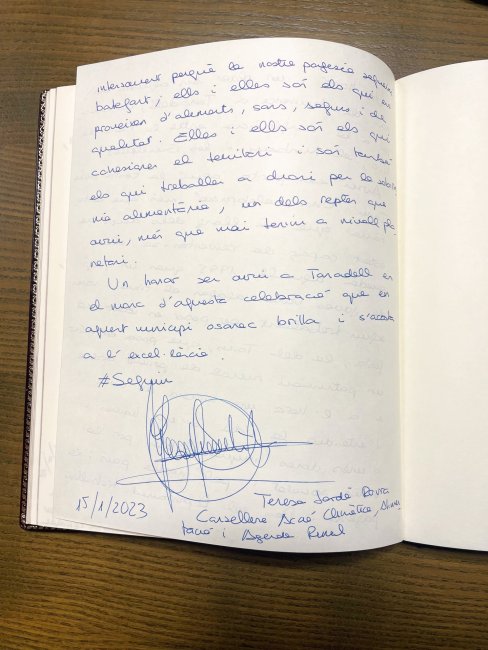 intensament perquè la nostra pagesia segueixi
bategant, ells i elles són els qui ens
proveixen d'aliments, sans, segurs i de
qualitat. Elles i ells són els qui
cohesionen el territori i són també
els qui treballen a diari per la sobira-
nia alimentària, un dels reptes que
avui, més que mai tenim a nivell pla-
netari.
Un honor ser avui a Taradell en
el marc d'aquesta celebració que en
aquest municipi osonenc brilla i s'acosta
a l'excel·lència.
#Seguim
15/1/2023
Teresa Jordà Roura
Consellera Acció Climàtica, Alimen
tació i Agenda Rural